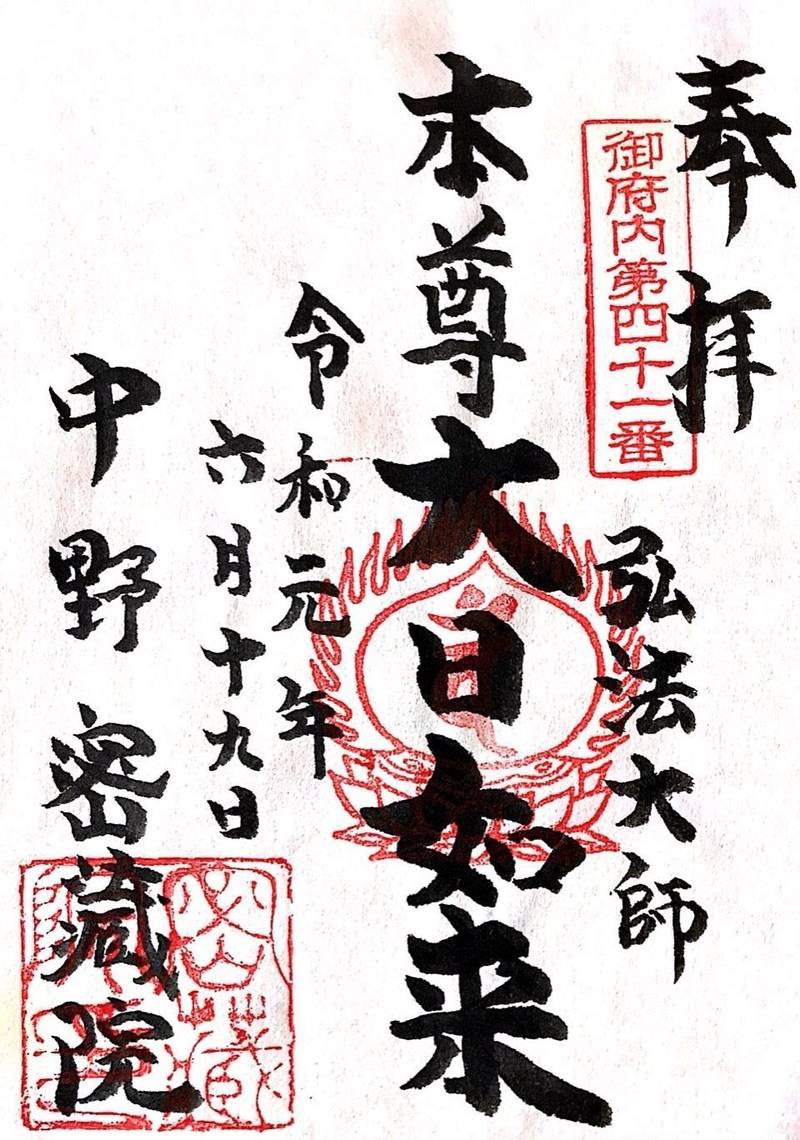 奉拝
御府内第四十一番
弘法大師
本尊大日如来
令和元年
六月十九日
中野密蔵院